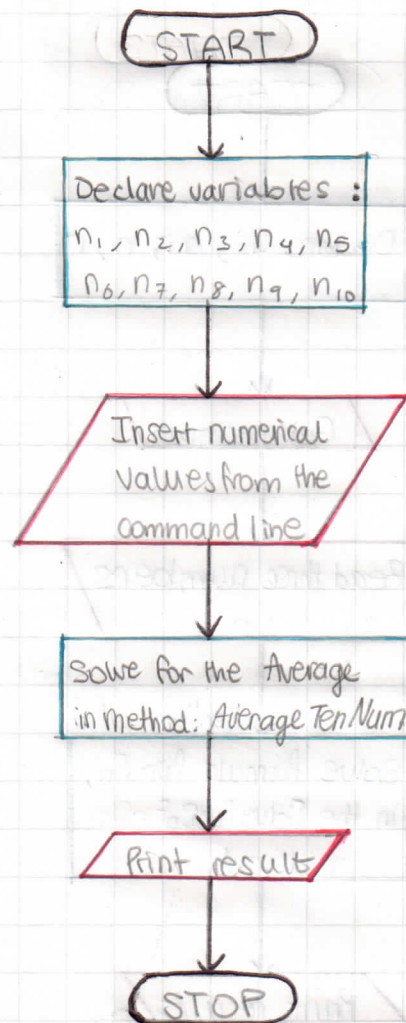 START
Declare variables :
n₁, n₂, n₃, n₄, n₅
n₆, n₇, n₈, n₉, n₁₀
Insert numerical
values from the
command line
Solve for the Average
in method: Average Ten Num
Print result
STOP